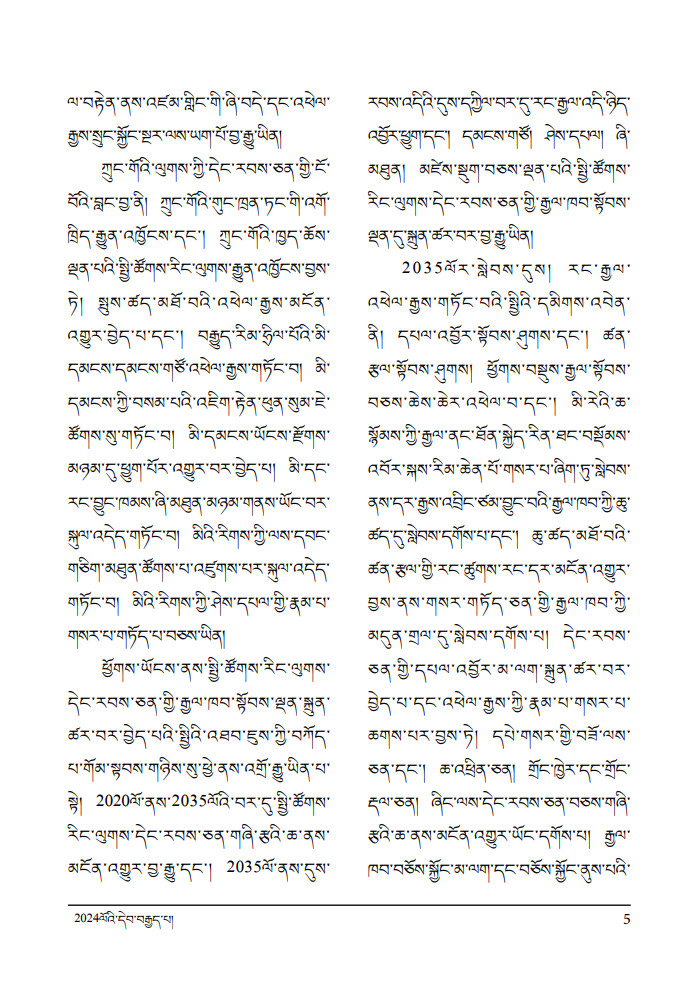 ལ་བརྟེན་ནས་འཛམ་གླིང་གི་ཞི་བདེ་དང་འཕེལ་
རྒྱས་སྲུང་སྐྱོང་སྔར་ལས་ཡག་པོ་བྱ་རྒྱུ་ཡིན།
ཀྲུང་གོའི་ལུགས་ཀྱི་དེང་རབས་ཅན་གྱི་ངོ་
བོའི་བླང་བྱ་ནི། ཀྲུང་གོའི་གུང་ཁྲན་ཏང་གི་འགོ་
ཁྲིད་རྒྱུན་འཁྱོངས་དང་། ཀྲུང་གོའི་ཁྱད་ཆོས་
ལྡན་པའི་སྤྱི་ཚོགས་རིང་ལུགས་རྒྱུན་འཁྱོངས་བྱས་
ཏེ། སྤུས་ཚད་མཐོ་བའི་འཕེལ་རྒྱས་མངོན་
འགྱུར་བྱེད་པ་དང་། བརྒྱུད་རིམ་ཧྲིལ་པོའི་མི་
དམངས་དམངས་གཙོ་འཕེལ་རྒྱས་གཏོང་བ། མི་
དམངས་ཀྱི་བསམ་པའི་འཇིག་རྟེན་ཕུན་སུམ་ཇེ་
ཚོགས་སུ་གཏོང་བ། མི་དམངས་ཡོངས་རྫོགས་
མཉམ་དུ་ཕྱུག་པོར་འགྱུར་བར་བྱེད་པ། མི་དང་
རང་བྱུང་ཁམས་ཞི་མཐུན་མཉམ་གནས་ཡོང་བར་
སྐུལ་འདེད་གཏོང་བ། མིའི་རིགས་ཀྱི་ལས་དབང་
གཅིག་མཐུན་ཚོགས་པ་འཛུགས་པར་སྐུལ་འདེད་
གཏོང་བ། མིའི་རིགས་ཀྱི་ཤེས་དཔལ་གྱི་རྣམ་པ་
གསར་པ་གཏོད་པ་བཅས་ཡིན།
ཕྱོགས་ཡོངས་ནས་སྤྱི་ཚོགས་རིང་ལུགས་
དེང་རབས་ཅན་གྱི་རྒྱལ་ཁབ་སྟོབས་ལྡན་སྐྲུན་
ཚར་བར་བྱེད་པའི་སྤྱིའི་འཐབ་ཇུས་ཀྱི་བཀོད་
པ་གོམ་སྟབས་གཉིས་སུ་ཕྱེ་ནས་འགྲོ་རྒྱུ་ཡིན་པ་
སྟེ། 2020ལོ་ནས་2035ལོའི་བར་དུ་སྤྱི་ཚོགས་
རིང་ལུགས་དེང་རབས་ཅན་གཞི་རྩའི་ཆ་ནས་
མངོན་འགྱུར་བྱ་རྒྱུ་དང་། 2035ལོ་ནས་དུས་
རབས་འདིའི་དུས་དཀྱིལ་བར་དུ་རང་རྒྱལ་འདི་ཉིད་
འབྱོར་ཕྱུག་དང་། དམངས་གཙོ། ཤེས་དཔལ། ཞི་
མཐུན། མཛེས་སྡུག་བཅས་ལྡན་པའི་སྤྱི་ཚོགས་
རིང་ལུགས་དེང་རབས་ཅན་གྱི་རྒྱལ་ཁབ་སྟོབས་
ལྡན་དུ་སྐྲུན་ཚར་བར་བྱ་རྒྱུ་ཡིན།
2035ལོར་སླེབས་དུས། རང་རྒྱལ་
འཕེལ་རྒྱས་གཏོང་བའི་སྤྱིའི་དམིགས་འབེན་
ནི། དཔལ་འབྱོར་སྟོབས་ཤུགས་དང་། ཚན་
རྩལ་སྟོབས་ཤུགས། ཕྱོགས་བསྡུས་རྒྱལ་སྟོབས་
བཅས་ཆེས་ཆེར་འཕེལ་བ་དང་། མི་རེའི་ཆ་
སྙོམས་ཀྱི་རྒྱལ་ནང་ཐོན་སྐྱེད་རིན་ཐང་བསྡོམས་
འབོར་སྐས་རིམ་ཆེན་པོ་གསར་པ་ཞིག་ཏུ་སླེབས་
ནས་དར་རྒྱས་འབྲིང་ཙམ་བྱུང་བའི་རྒྱལ་ཁབ་ཀྱི་ཆུ་
ཚད་དུ་སླེབས་དགོས་པ་དང་། ཆུ་ཚད་མཐོ་བའི་
ཚན་རྩལ་གྱི་རང་ཚུགས་རང་དར་མངོན་འགྱུར་
བྱས་ནས་གསར་གཏོད་ཅན་གྱི་རྒྱལ་ཁབ་ཀྱི་
མདུན་གྲལ་དུ་སླེབས་དགོས་པ། དེང་རབས་
ཅན་གྱི་དཔལ་འབྱོར་མ་ལག་སྐྲུན་ཚར་བར་
བྱེད་པ་དང་འཕེལ་རྒྱས་ཀྱི་རྣམ་པ་གསར་པ་
ཆགས་པར་བྱས་ཏེ། དཔེ་གསར་གྱི་བཟོ་ལས་
ཅན་དང་། ཆ་འཕྲིན་ཅན། གྲོང་ཁྱེར་དང་གྲོང་
རྡལ་ཅན། ཞིང་ལས་དེང་རབས་ཅན་བཅས་གཞི་
རྩའི་ཆ་ནས་མངོན་འགྱུར་ཡོང་དགོས་པ། རྒྱལ་
ཁབ་བཅོས་སྐྱོང་མ་ལག་དང་བཅོས་སྐྱོང་ནུས་པའི་
2024ལོའི་དེབ་བརྒྱད་པ། 5